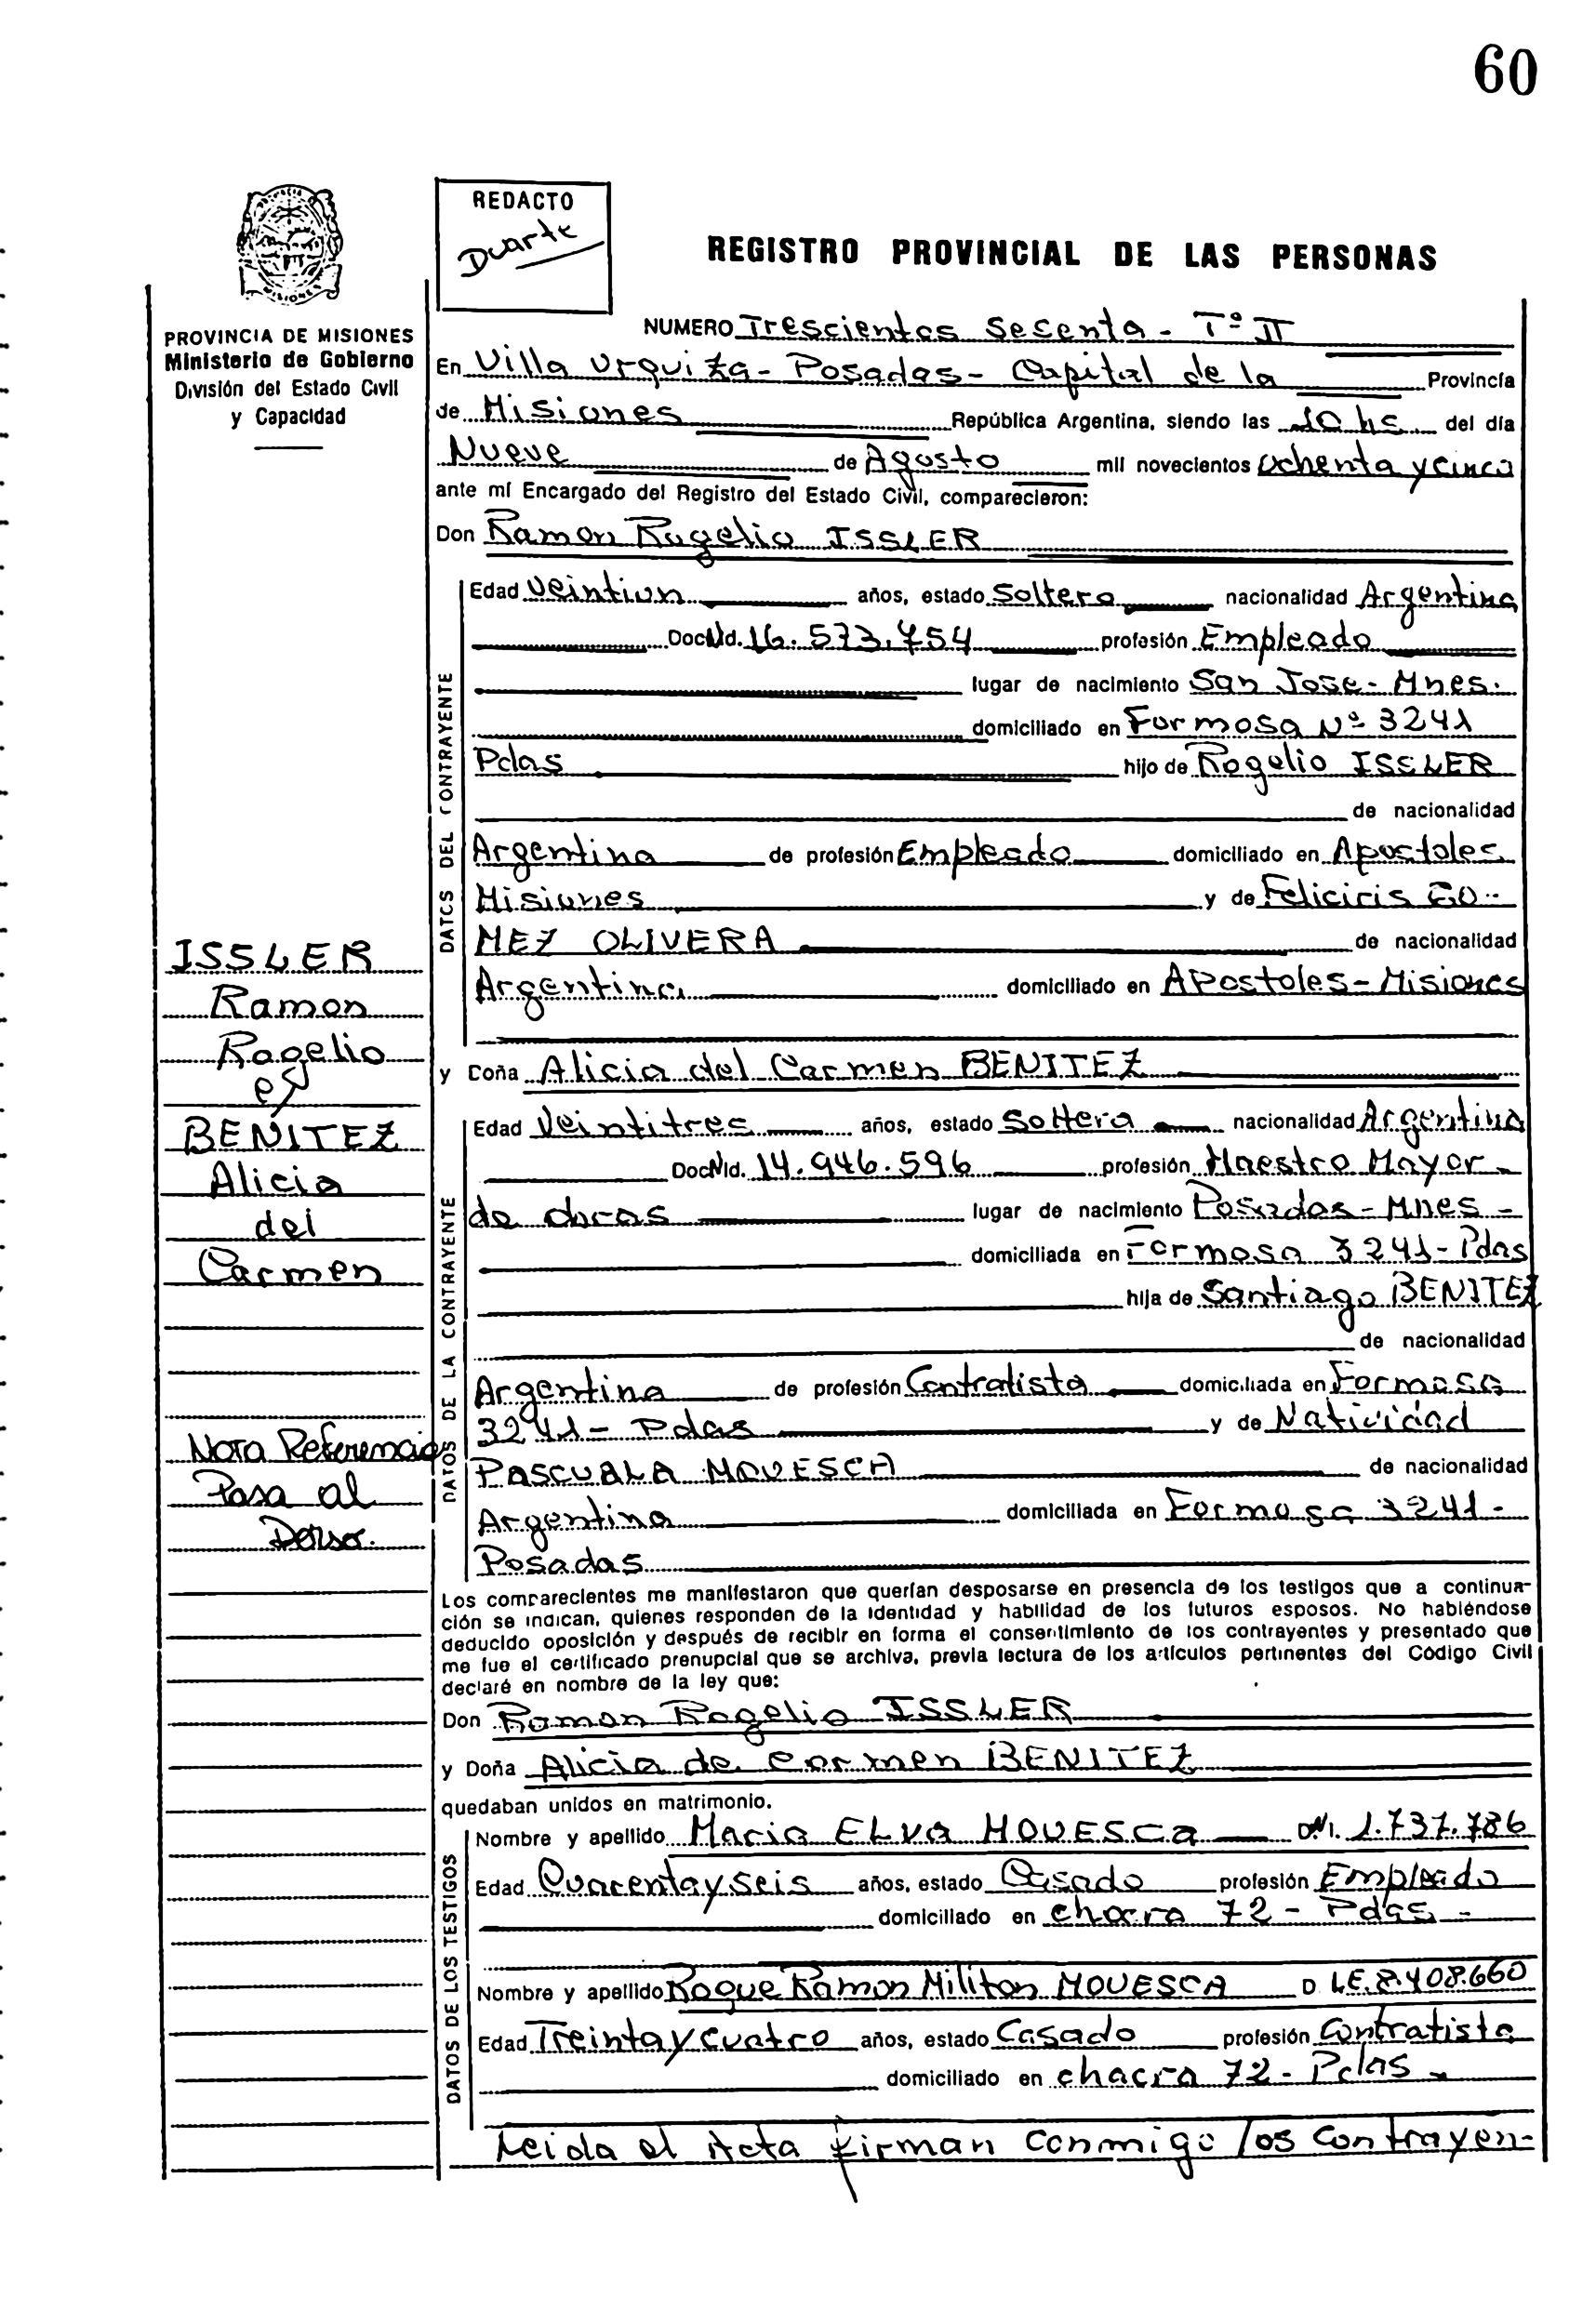 60
REDACTO
Duarte
REGISTRO PROVINCIAL DE LAS PERSONAS
PROVINCIA DE MISIONES
Ministerio de Gobierno
División del Estado Civil
y Capacidad
NUMERO Trescientos Sesenta - Tº II
En Villa Urquiza - Posadas - Capital de la Provincia
de Misiones República Argentina, siendo las 10 hs del día
Nueve de Agosto mil novecientos ochenta y cinco
ante mí Encargado del Registro del Estado Civil, comparecieron:
Don Ramon Rogelio ISSLER
DATOS DEL CONTRAYENTE
Edad Veintiun años, estado Soltero nacionalidad Argentina
Doc NId. 16.573.754 profesión Empleado
lugar de nacimiento San Jose - Mnes.
domiciliado en Formosa Nº 3241
Pdas hijo de Rogelio ISSLER
de nacionalidad
Argentina de profesión Empleado domiciliado en Apostoles
Misiones y de Feliciris GO-
MEZ OLIVERA de nacionalidad
Argentina domiciliado en Apostoles - Misiones
ISSLER
Ramon
Rogelio
c/
BENITEZ
Alicia
del
Carmen
Nota Referencia
Pasa al
Dorso.
y Doña Alicia del Carmen BENITEZ
DATOS DE LA CONTRAYENTE
Edad Veintitres años, estado Soltera nacionalidad Argentina
Doc NId. 14.946.596 profesión Maestro Mayor -
de obras lugar de nacimiento Posadas - Mnes -
domiciliada en Formosa 3241 - Pdas
hija de Santiago BENITEZ
de nacionalidad
Argentina de profesión Contratista domiciliada en Formosa
3241 - Pdas y de Natividad
PASCUALA MOVESCA de nacionalidad
Argentina domiciliada en Formosa 3241 -
Posadas
Los comparecientes me manifestaron que querían desposarse en presencia de los testigos que a continua-
ción se indican, quienes responden de la identidad y habilidad de los futuros esposos. No habiéndose
deducido oposición y después de recibir en forma el consentimiento de los contrayentes y presentado que
me fue el certificado prenupcial que se archiva, previa lectura de los artículos pertinentes del Código Civil
declaré en nombre de la ley que:
Don Ramon Rogelio ISSLER
y Doña Alicia de Carmen BENITEZ
quedaban unidos en matrimonio.
DATOS DE LOS TESTIGOS
Nombre y apellido Maria ELVA MOVESCA DNI. 1.737.786
Edad Cuarenta y seis años, estado Casado profesión Empleado
domiciliado en chacra 72 - Pdas -
Nombre y apellido Roque Ramon Militon MOVESCA D LE. 8.408.660
Edad Treinta y cuatro años, estado Casado profesión Contratista
domiciliado en chacra 72 - Pdas -
Leida el Acta firman conmigo los contrayen-